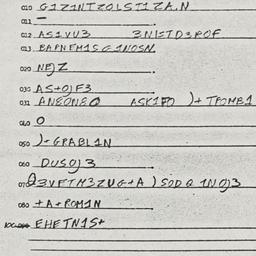 010 G1Z1NTZOLST1ZA.N
011 —
012 AS1VU3 3N1STD3POF
013 BAPNFM1SG1NOSN
020 NEJZ
030 AS+OJF3
031 ANEONEQ ASK1FO )+TPOMB1
040 O
050 )-GRABL1N
060 DUSOJ3
070 Q3VFTM3ZUG+A )SODQ1NOJ3
080 +A+ROM1N
100 EHETN1S+